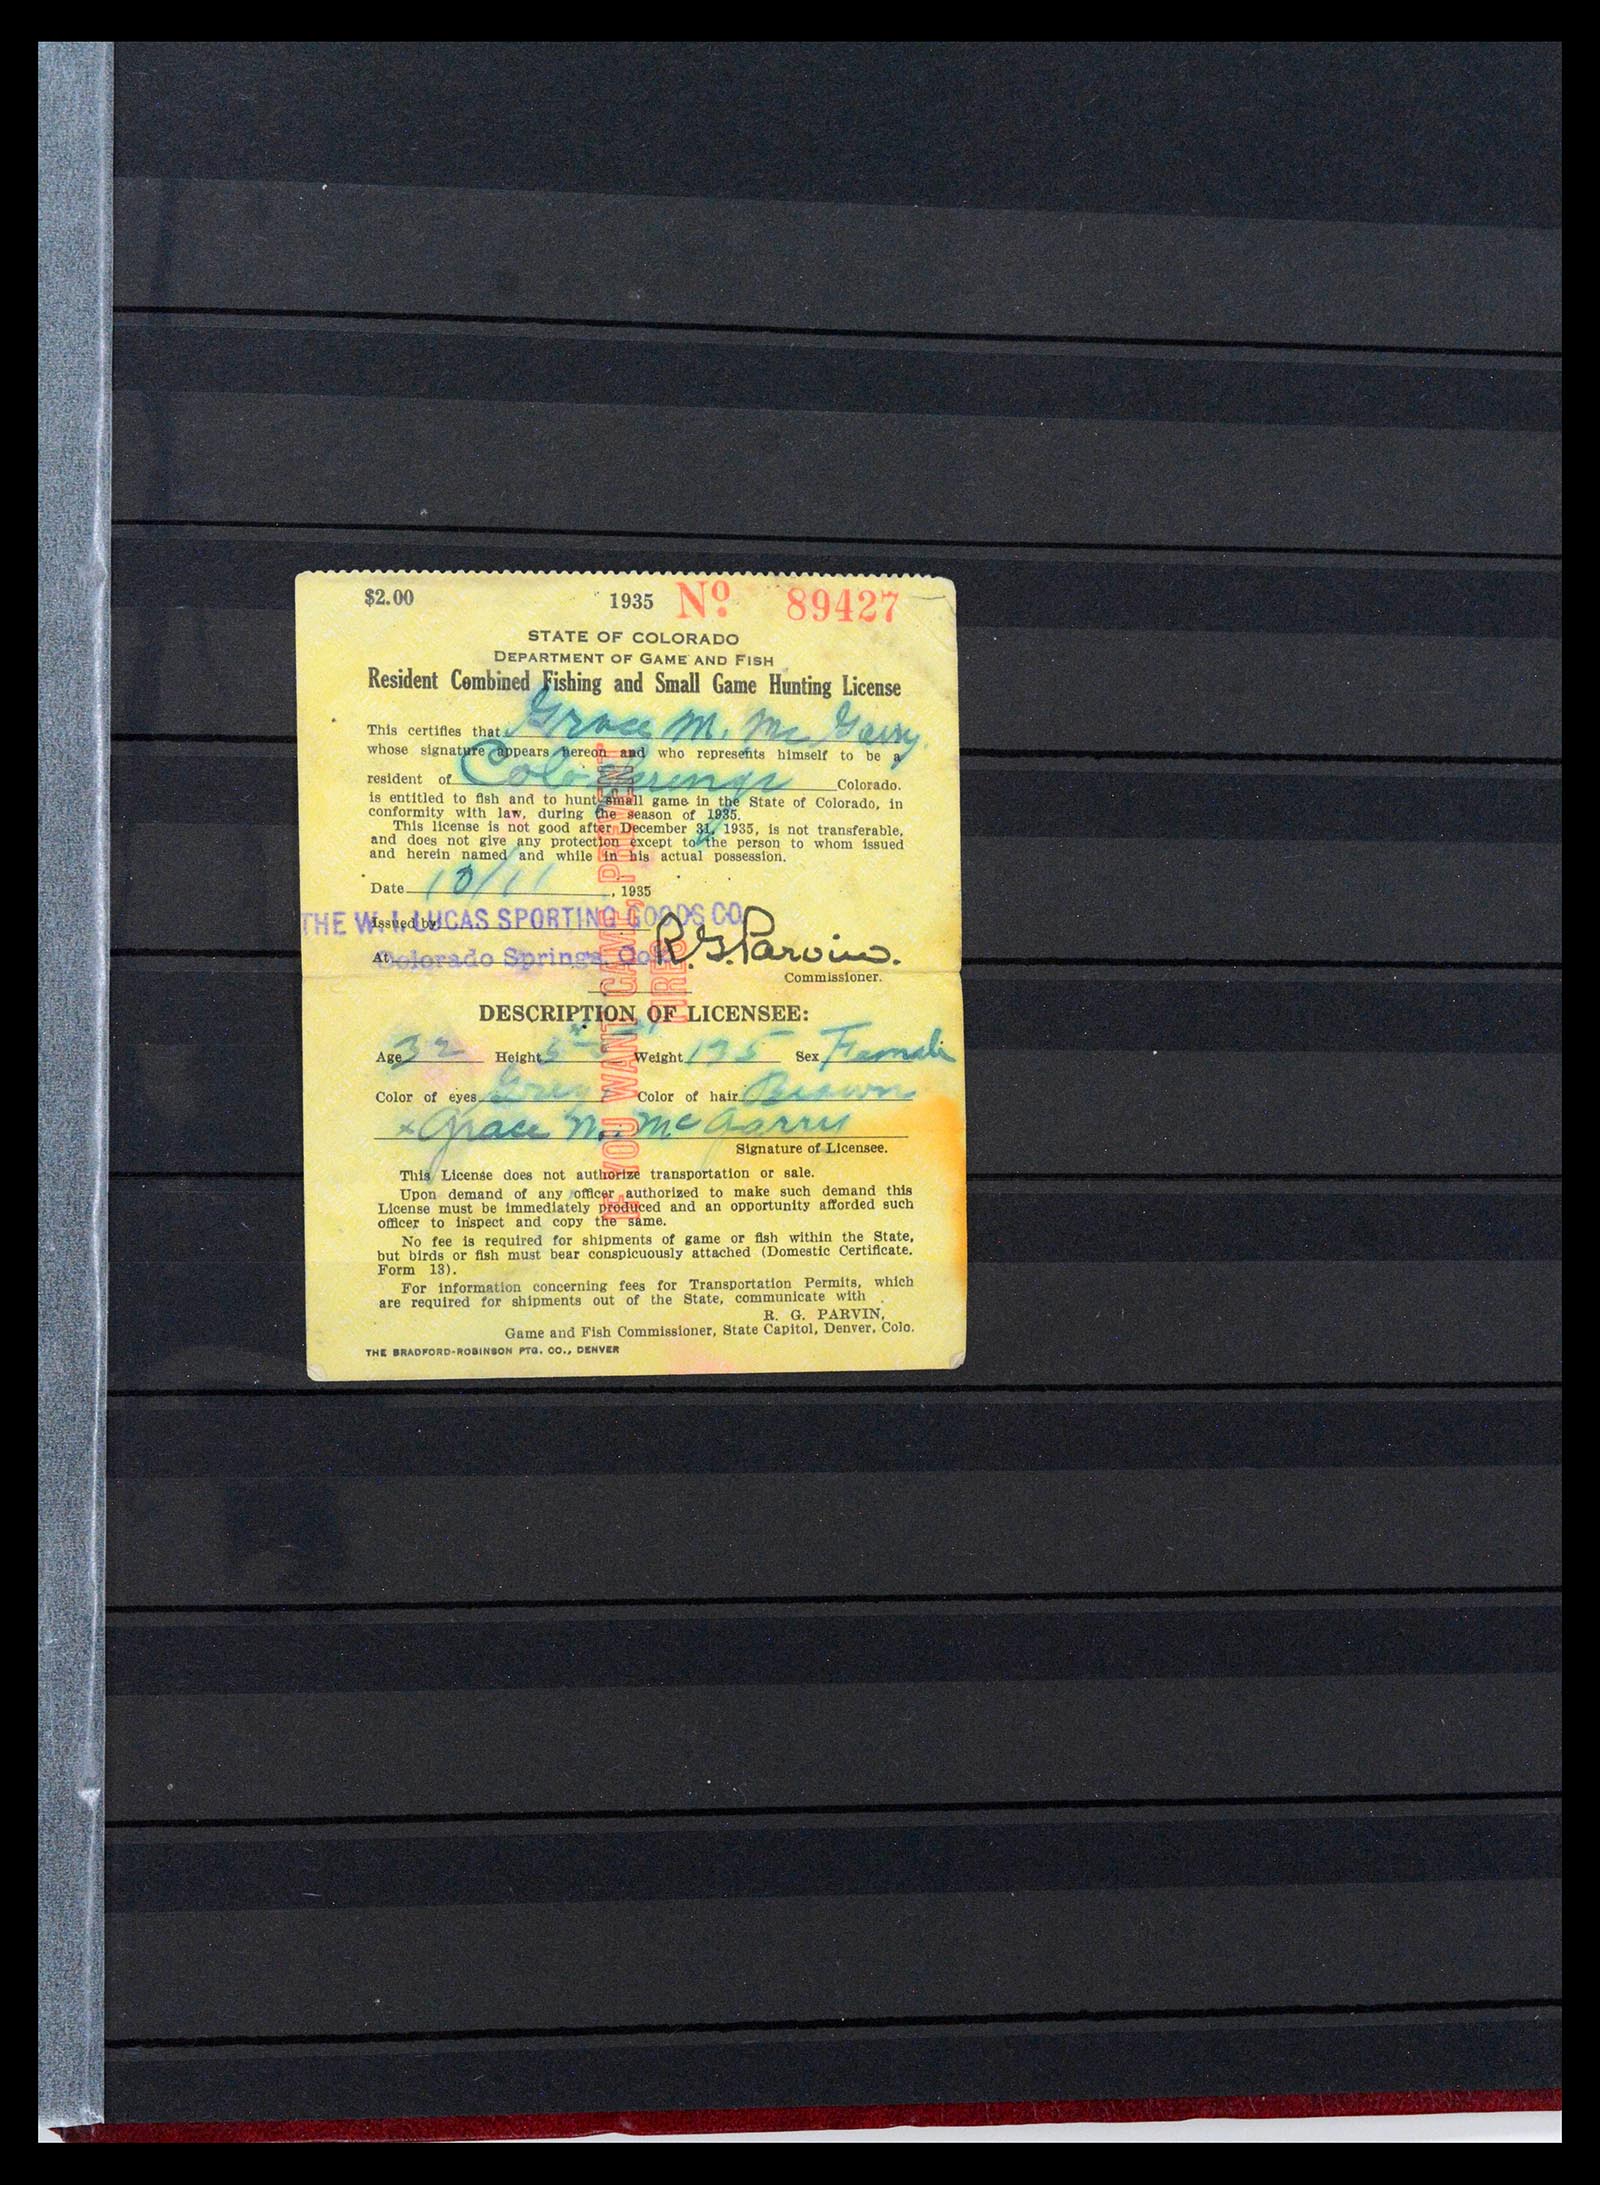 $2.00 1935 No. 89427
STATE OF COLORADO
DEPARTMENT OF GAME AND FISH
Resident Combined Fishing and Small Game Hunting License
This certifies that Grace M. Mc Garry
whose signature appears hereon and who represents himself to be a
resident of Colo Springs Colorado.
is entitled to fish and to hunt small game in the State of Colorado, in
conformity with law, during the season of 1935.
This license is not good after December 31, 1935, is not transferable,
and does not give any protection except to the person to whom issued
and herein named and while in his actual possession.
Date 10/11, 1935
Issued by THE W. I. LUCAS SPORTING GOODS CO.
At Colorado Springs, Colo. R. G. Parvin.
Commissioner.
IF YOU WANT GAME, PREVENT
FIRES
DESCRIPTION OF LICENSEE:
Age 32 Height 5 Weight 175 Sex Female
Color of eyes Grey Color of hair Brown
x Grace M. McGarry
Signature of Licensee.
This License does not authorize transportation or sale.
Upon demand of any officer authorized to make such demand this
License must be immediately produced and an opportunity afforded such
officer to inspect and copy the same.
No fee is required for shipments of game or fish within the State,
but birds or fish must bear conspicuously attached (Domestic Certificate.
Form 13).
For information concerning fees for Transportation Permits, which
are required for shipments out of the State, communicate with
R. G. PARVIN,
Game and Fish Commissioner, State Capitol, Denver, Colo.
THE BRADFORD-ROBINSON PTG. CO., DENVER